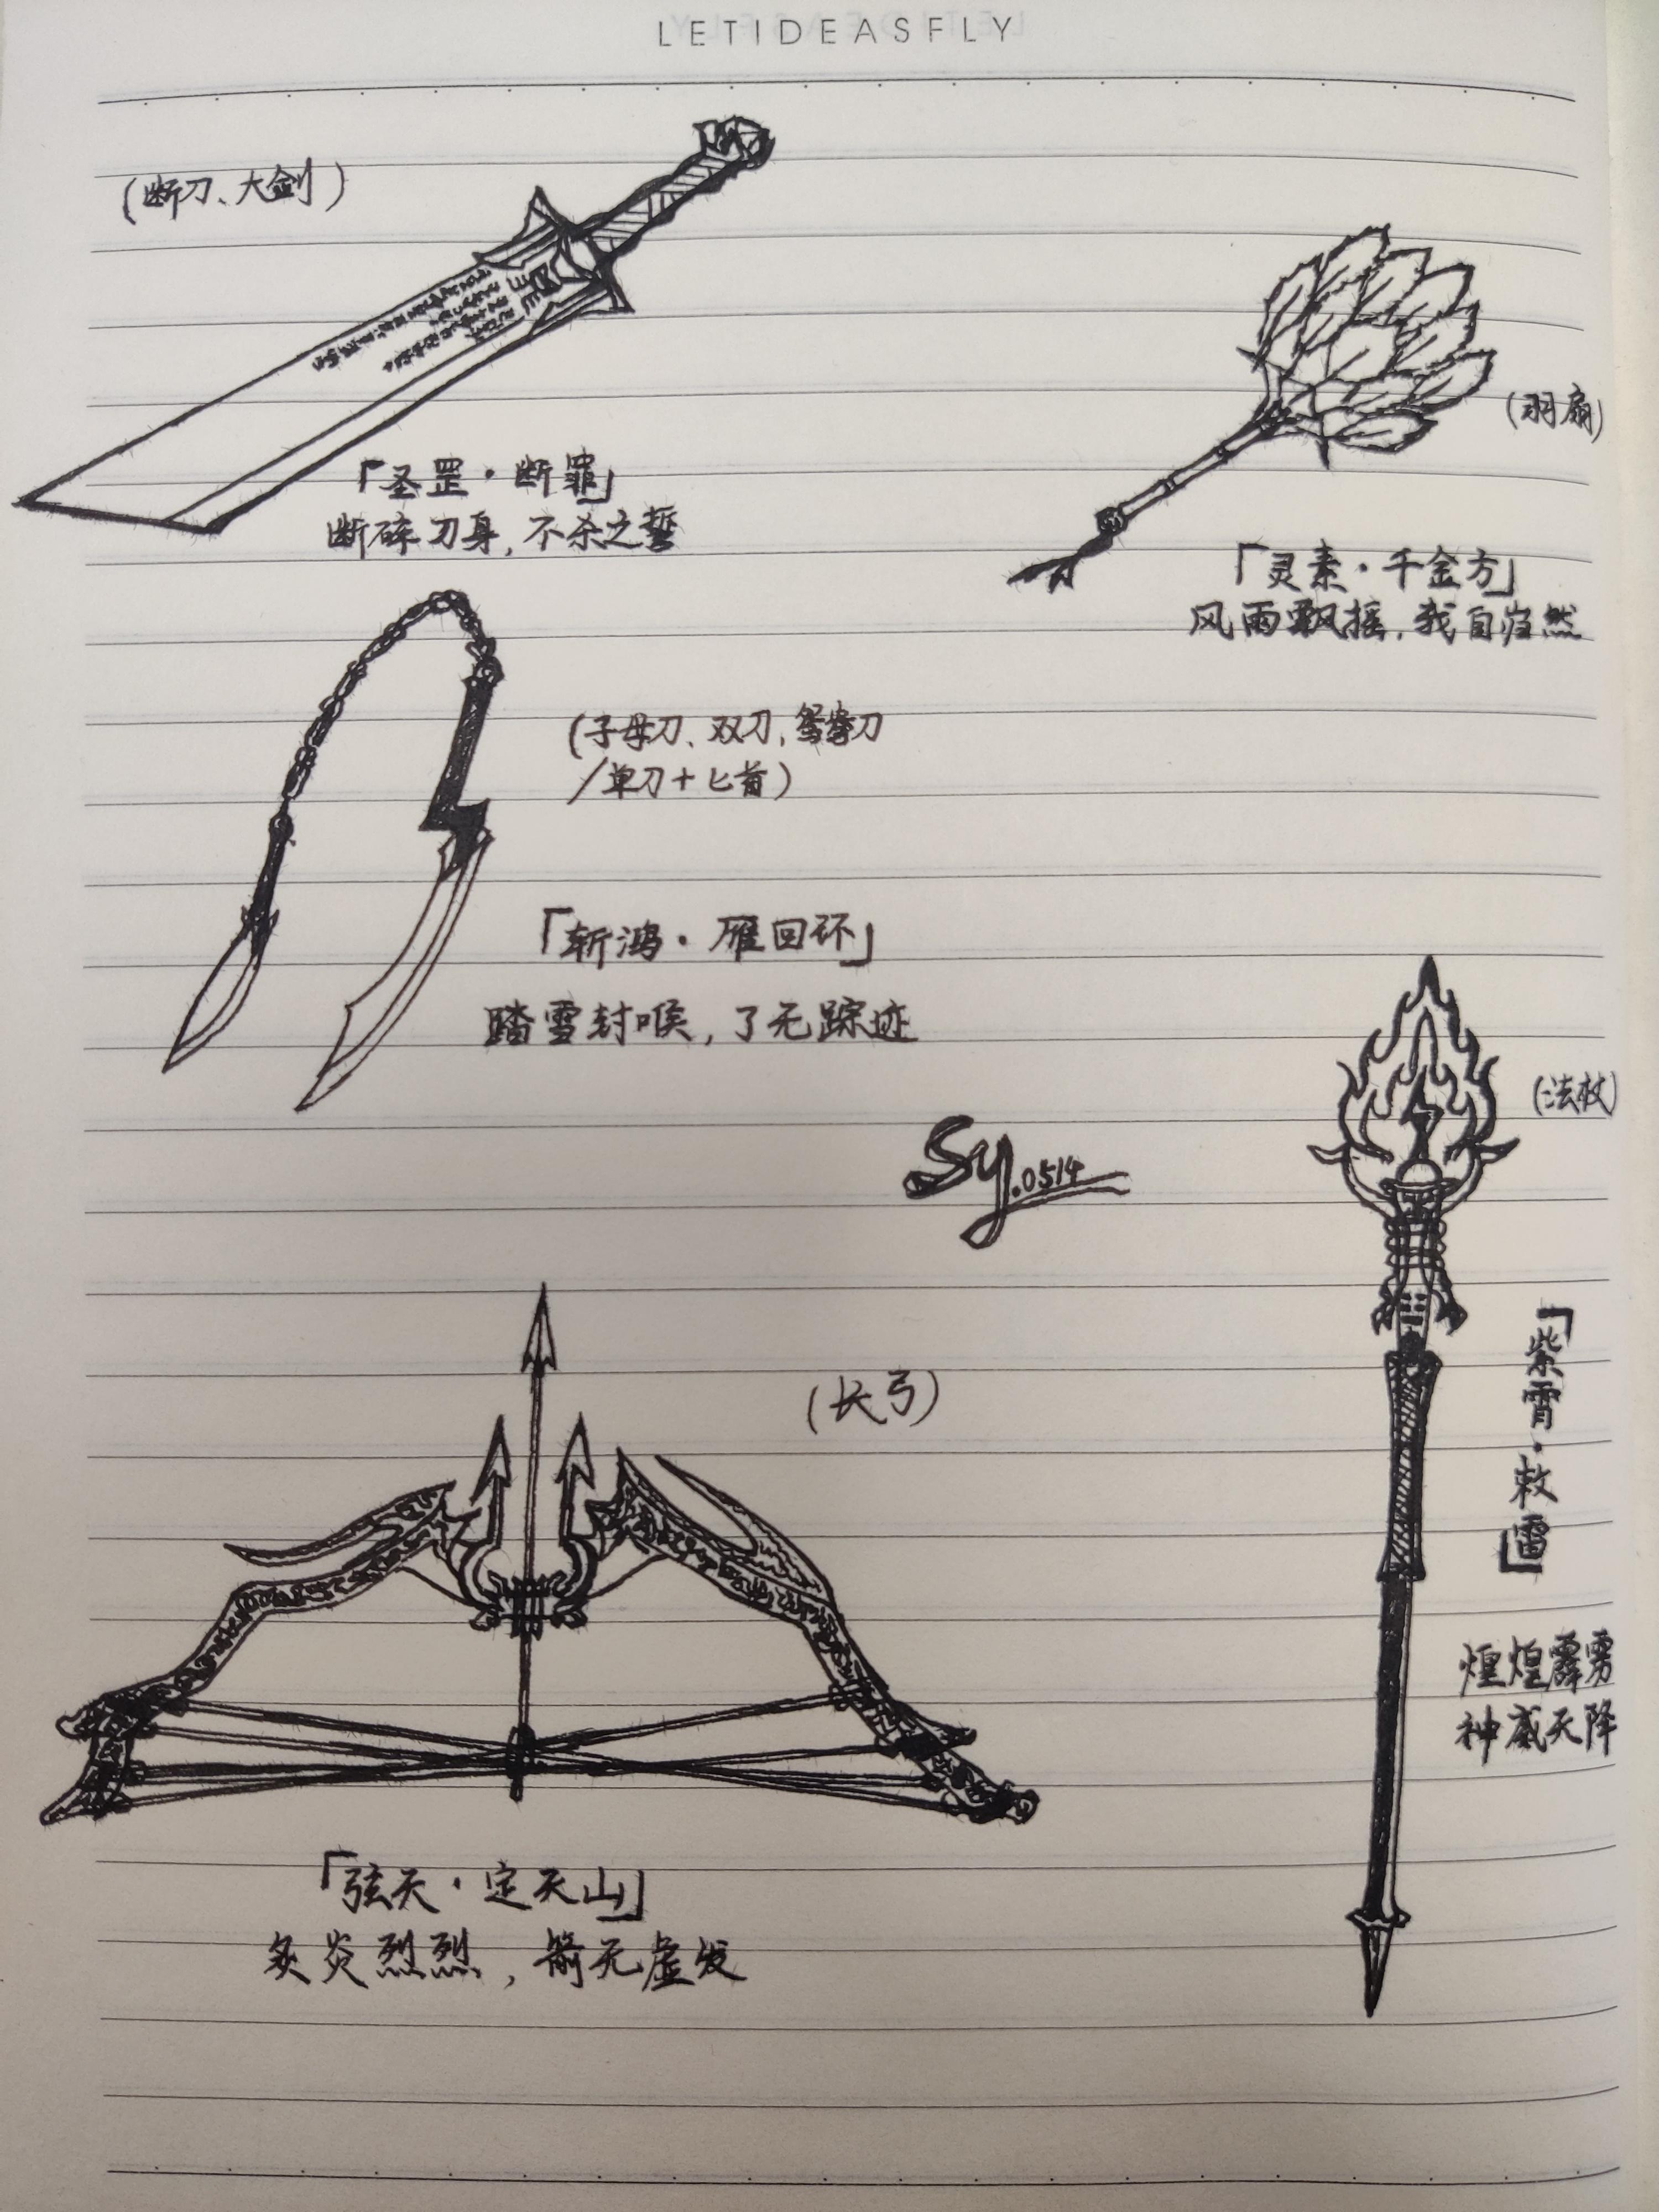 LETIDEASFLY
(断刀、大剑)
「圣罡·断罪」
断碎刀身,不杀之誓
(羽扇)
「灵素·千金方」
风雨飘摇,我自岿然
(子母刀、双刀,鸳鸯刀
/单刀+匕首)
「斩鸿·雁回环」
踏雪封喉,了无踪迹
Sy.0514
(法杖)
「紫霄·敕雷」
煌煌霹雳
神威天降
(长弓)
「弦天·定天山」
炙炎烈烈,箭无虚发